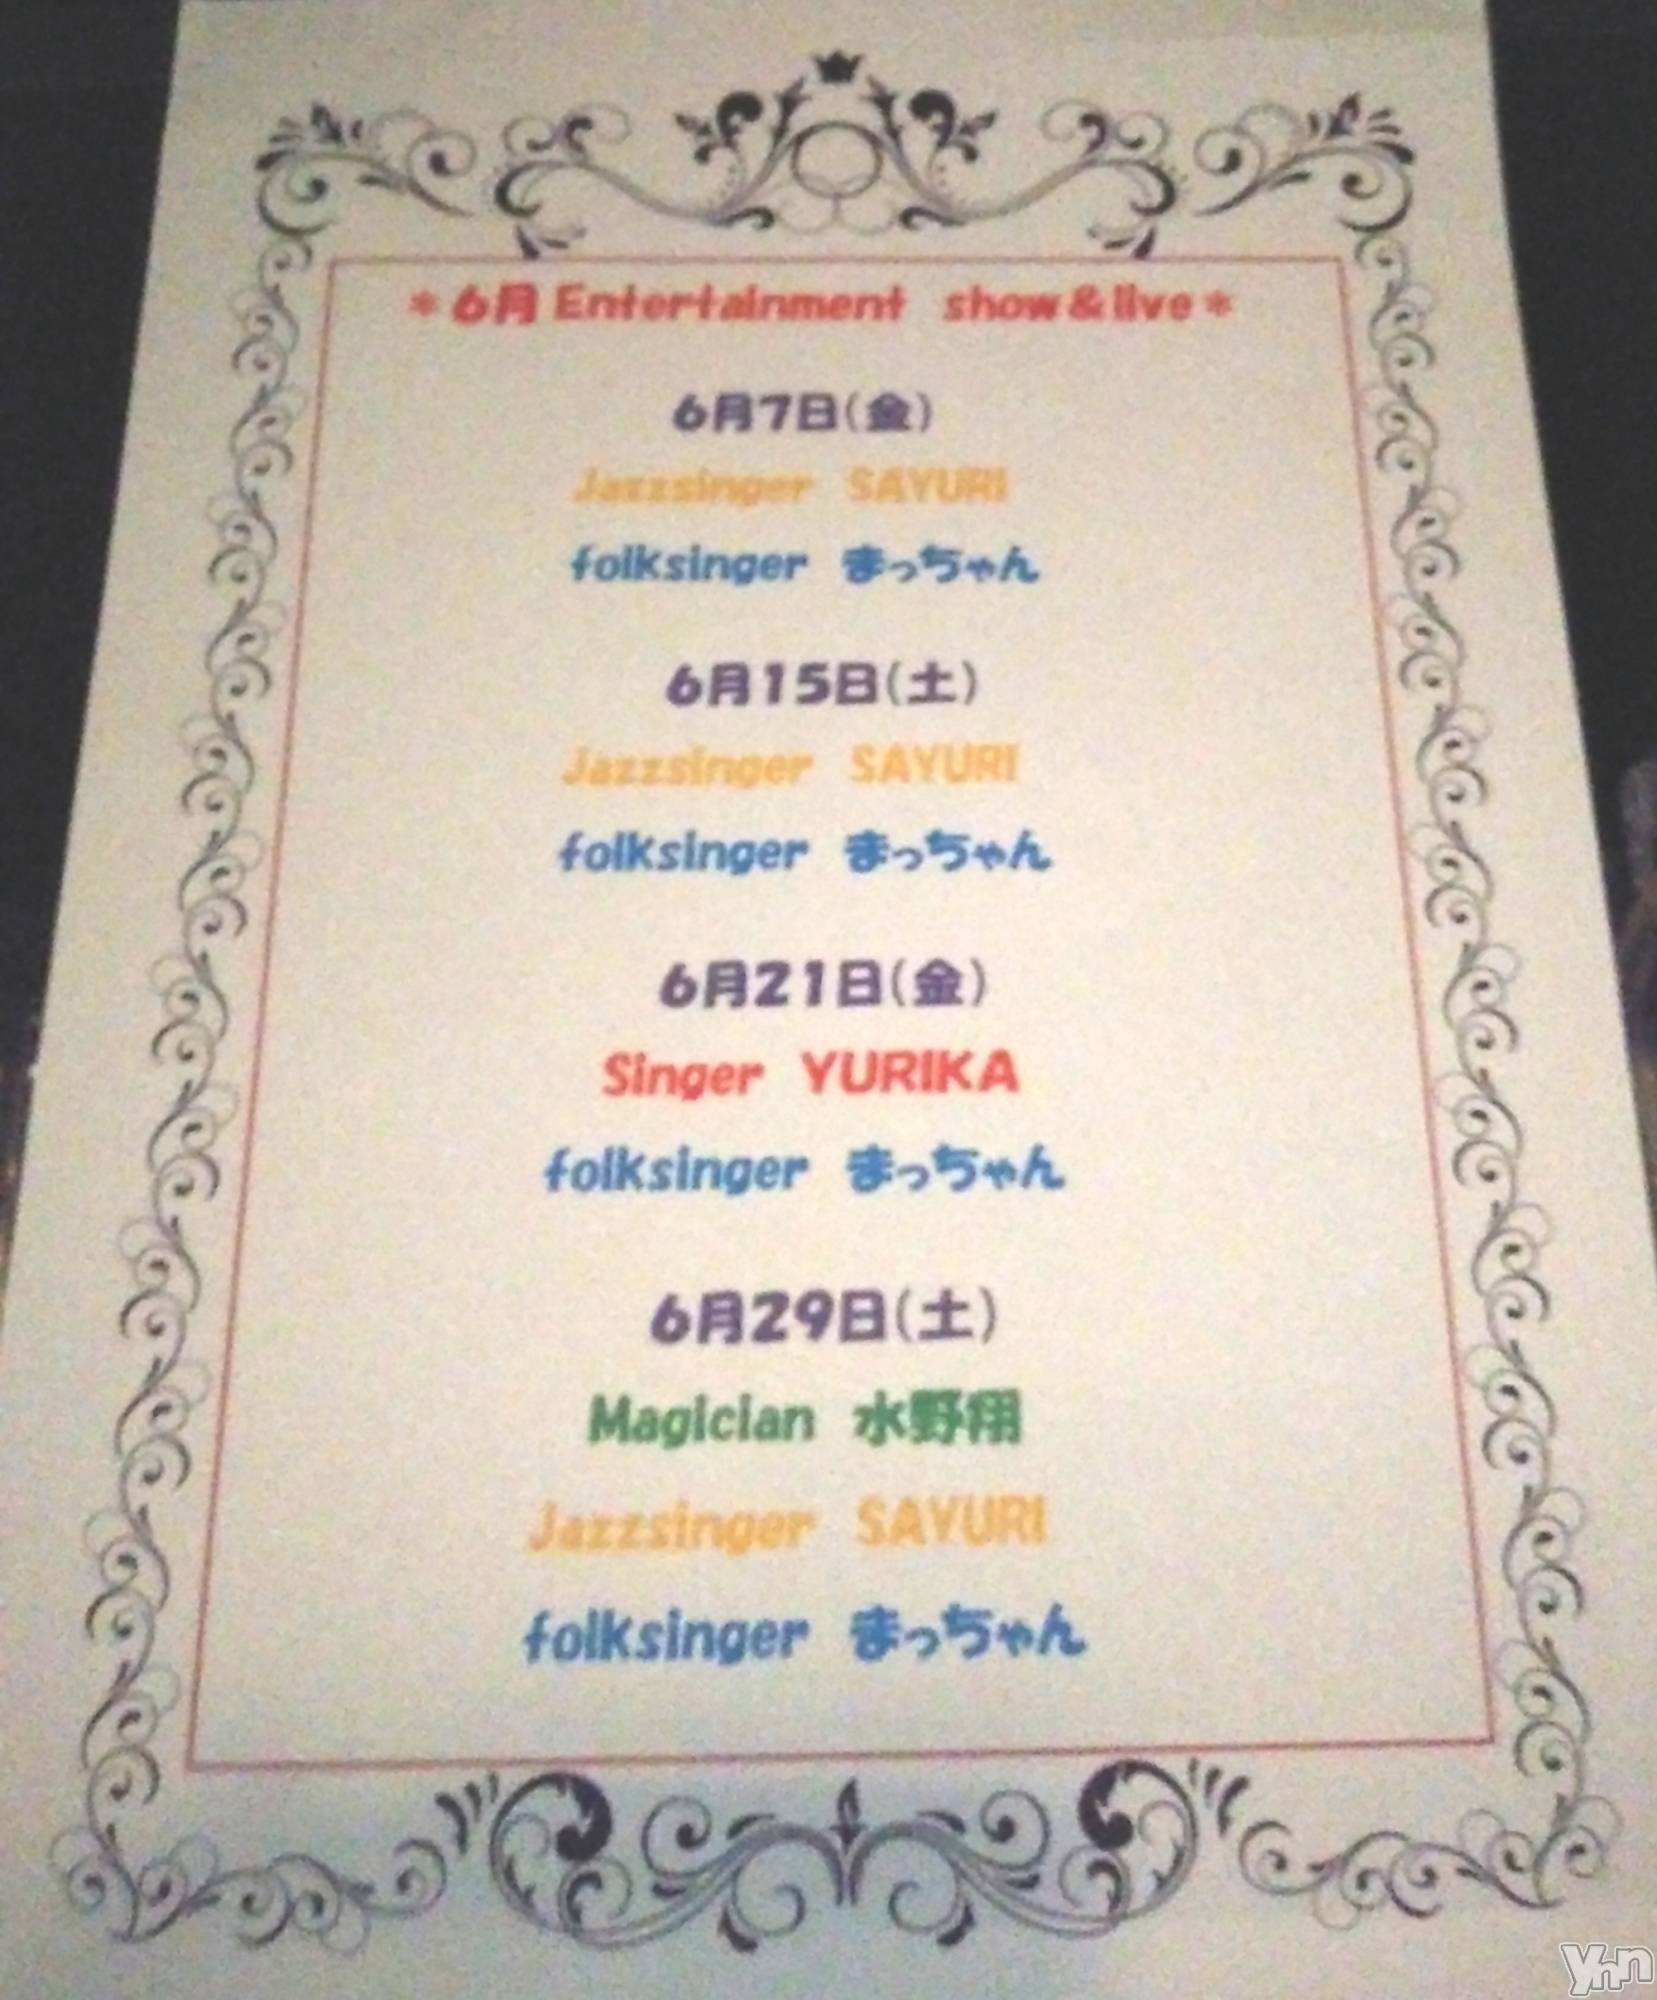 *6月 Entertainment show&live*
6月7日(金)
Jazzsinger SAYURI
folksinger まっちゃん
6月15日(土)
Jazzsinger SAYURI
folksinger まっちゃん
6月21日(金)
Singer YURIKA
folksinger まっちゃん
6月29日(土)
Magician 水野翔
Jazzsinger SAYURI
folksinger まっちゃん
Ynn